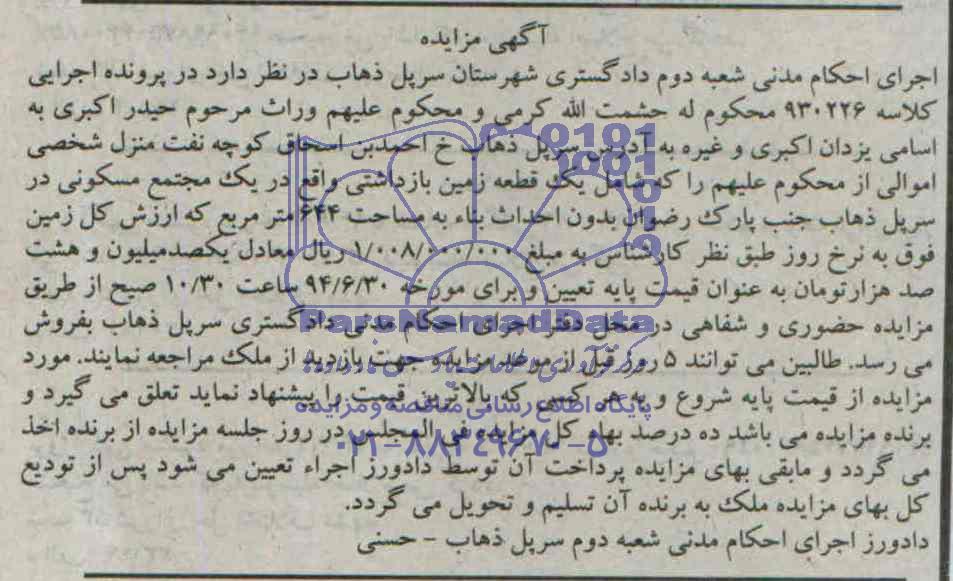 آگهی مزایده
اجرای احکام مدنی شعبه دوم دادگستری شهرستان سرپل ذهاب در نظر دارد در پرونده اجرایی
کلاسه ۹۳۰۲۲۶ محکوم له حشمت الله کرمی و محکوم علیهم وراث مرحوم حیدر اکبری به
اسامی یزدان اکبری و غیره به آدرس سرپل ذهاب خ احمدبن اسحاق کوچه نفت منزل شخصی
اموالی از محکوم علیهم را که شامل یک قطعه زمین بازداشتی واقع در یک مجتمع مسکونی در
سرپل ذهاب جنب پارک رضوان بدون احداث بناء به مساحت ۶۴۴ متر مربع که ارزش کل زمین
فوق به نرخ روز طبق نظر کارشناس به مبلغ ۱/۰۰۸/۰۰۰/۰۰۰ ریال معادل یکصدمیلیون و هشت
صد هزارتومان به عنوان قیمت پایه تعیین و برای مورخه ۹۴/۶/۳۰ ساعت ۱۰/۳۰ صبح از طریق
مزایده حضوری و شفاهی در محل دفتر اجرای احکام مدنی دادگستری سرپل ذهاب بفروش
می رسد. طالبین می توانند ۵ روز قبل از موعد مزایده جهت بازدید از ملک مراجعه نمایند. مورد
مزایده از قیمت پایه شروع و به هر کسی که بالاترین قیمت را پیشنهاد نماید تعلق می گیرد و
برنده مزایده می باشد ده درصد بهاء کل مزایده فی المجلس در روز جلسه مزایده از برنده اخذ
می گردد و مابقی بهای مزایده پرداخت آن توسط دادورز اجراء تعیین می شود پس از تودیع
کل بهای مزایده ملک به برنده آن تسلیم و تحویل می گردد.
دادورز اجرای احکام مدنی شعبه دوم سرپل ذهاب - حسنی
ParsNamadData
پایگاه اطلاع رسانی مناقصه و مزایده
۰۲۱-۸۸۳۴۹۶۷۰-۵